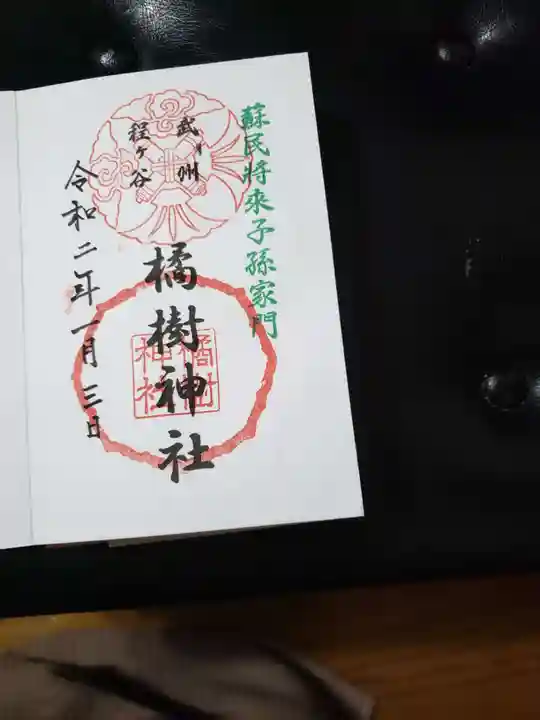 蘇民将来子孫家門
武州
程ヶ谷
橘樹神社
橘樹
神社
令和二年一月三日